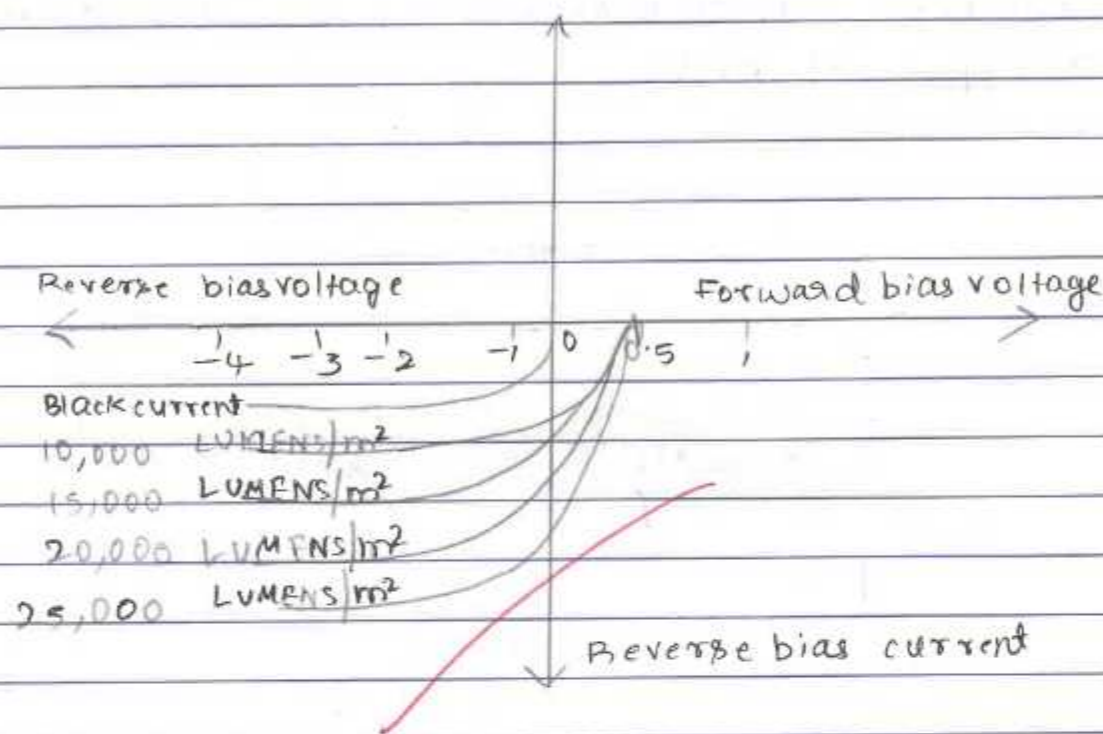 Reverse bias voltage Forward bias voltage
-4 -3 -2 -1 0 0.5 1
Black current
10,000 LUMENS/m²
15,000 LUMENS/m²
20,000 LUMENS/m²
25,000 LUMENS/m²
Reverse bias current